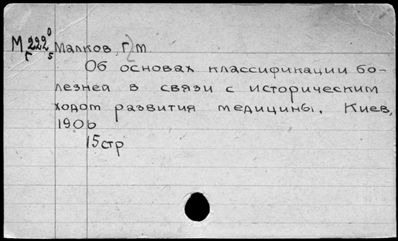 М 222⁰ Малков, Г. М
г 5
Об основах классификации бо-
лезней в связи с историческим
ходом развития медицины. Киев,
1906
15стр